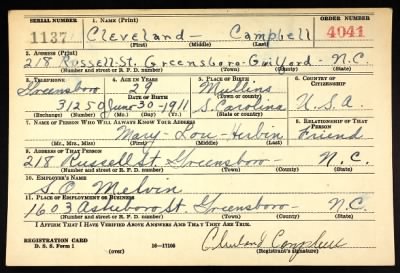 SERIAL NUMBER 1. NAME (Print) ORDER NUMBER
1137 Cleveland — Campbell 4041
(First) (Middle) (Last)
2. ADDRESS (Print)
218 Russell St. Greensboro Guilford - N.C.
(Number and street or R. F. D. number) (Town) (County) (State)
3. TELEPHONE 4. AGE IN YEARS 5. PLACE OF BIRTH 6. COUNTRY OF CITIZENSHIP
Greensboro 29 Mullins
DATE OF BIRTH (Town or county)
31250 June 30-1911 S. Carolina U.S.A
(Exchange) (Number) (Mo.) (Day) (Yr.) (State or country)
7. NAME OF PERSON WHO WILL ALWAYS KNOW YOUR ADDRESS 8. RELATIONSHIP OF THAT PERSON
Mary - Lou - Friend
(Mr., Mrs., Miss) (First) (Middle) (Last)
9. ADDRESS OF THAT PERSON
218 Russell St. Greensboro - N.C.
(Number and street or R. F. D. number) (Town) (County) (State)
10. EMPLOYER'S NAME
S. O. Melvin
11. PLACE OF EMPLOYMENT OR BUSINESS
1603 Asheboro St. Greensboro - N.C.
(Number and street or R. F. D. number) (Town) (County) (State)
I AFFIRM THAT I HAVE VERIFIED ABOVE ANSWERS AND THAT THEY ARE TRUE.
REGISTRATION CARD
D. S. S. Form 1 (over) 16—17105 Cleveland Campbell